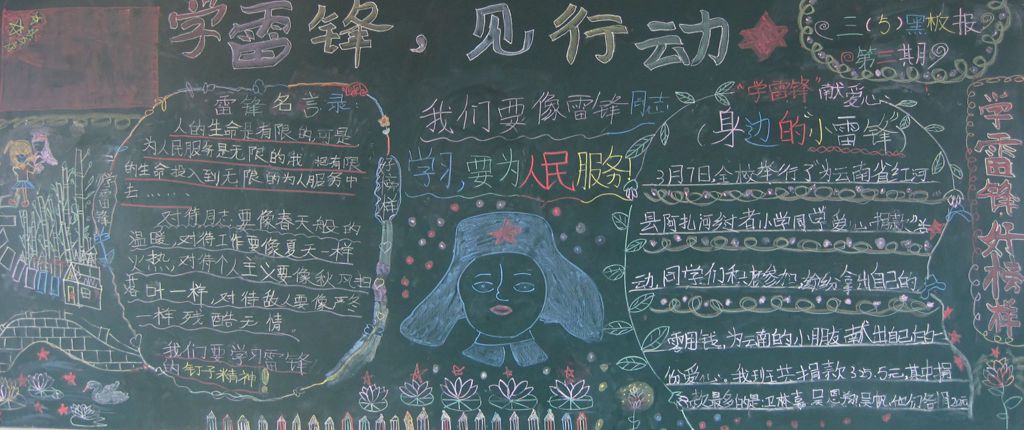 学雷锋,见行动
二(5)黑板报
第二期
雷锋名言录:
人的生命是有限的,可是
为人民服务是无限的,我 把有限
的生命投入到无限的为人民服务中
去……
对待同志要像春天般的
温暖,对待工作要像夏天一样
火热,对待个人主义要像秋风扫
落叶一样,对待敌人要像严冬
一样残酷无情
我们要学习雷锋
的钉子精神!
学雷锋
好榜样
我们要像雷锋同志
学习,要为人民服务!
"学雷锋"献爱心
(身边的"小雷锋")
3月7日,全校举行了为云南省红河
县阿扎河 者小学同学"爱心捐款"活
动,同学们积极参加,纷纷拿出自己的
零用钱,为云南的小朋友献出自己的一
份爱心。我班共捐款 元,其中捐
款最多的是: 他们各捐
学雷锋好榜样